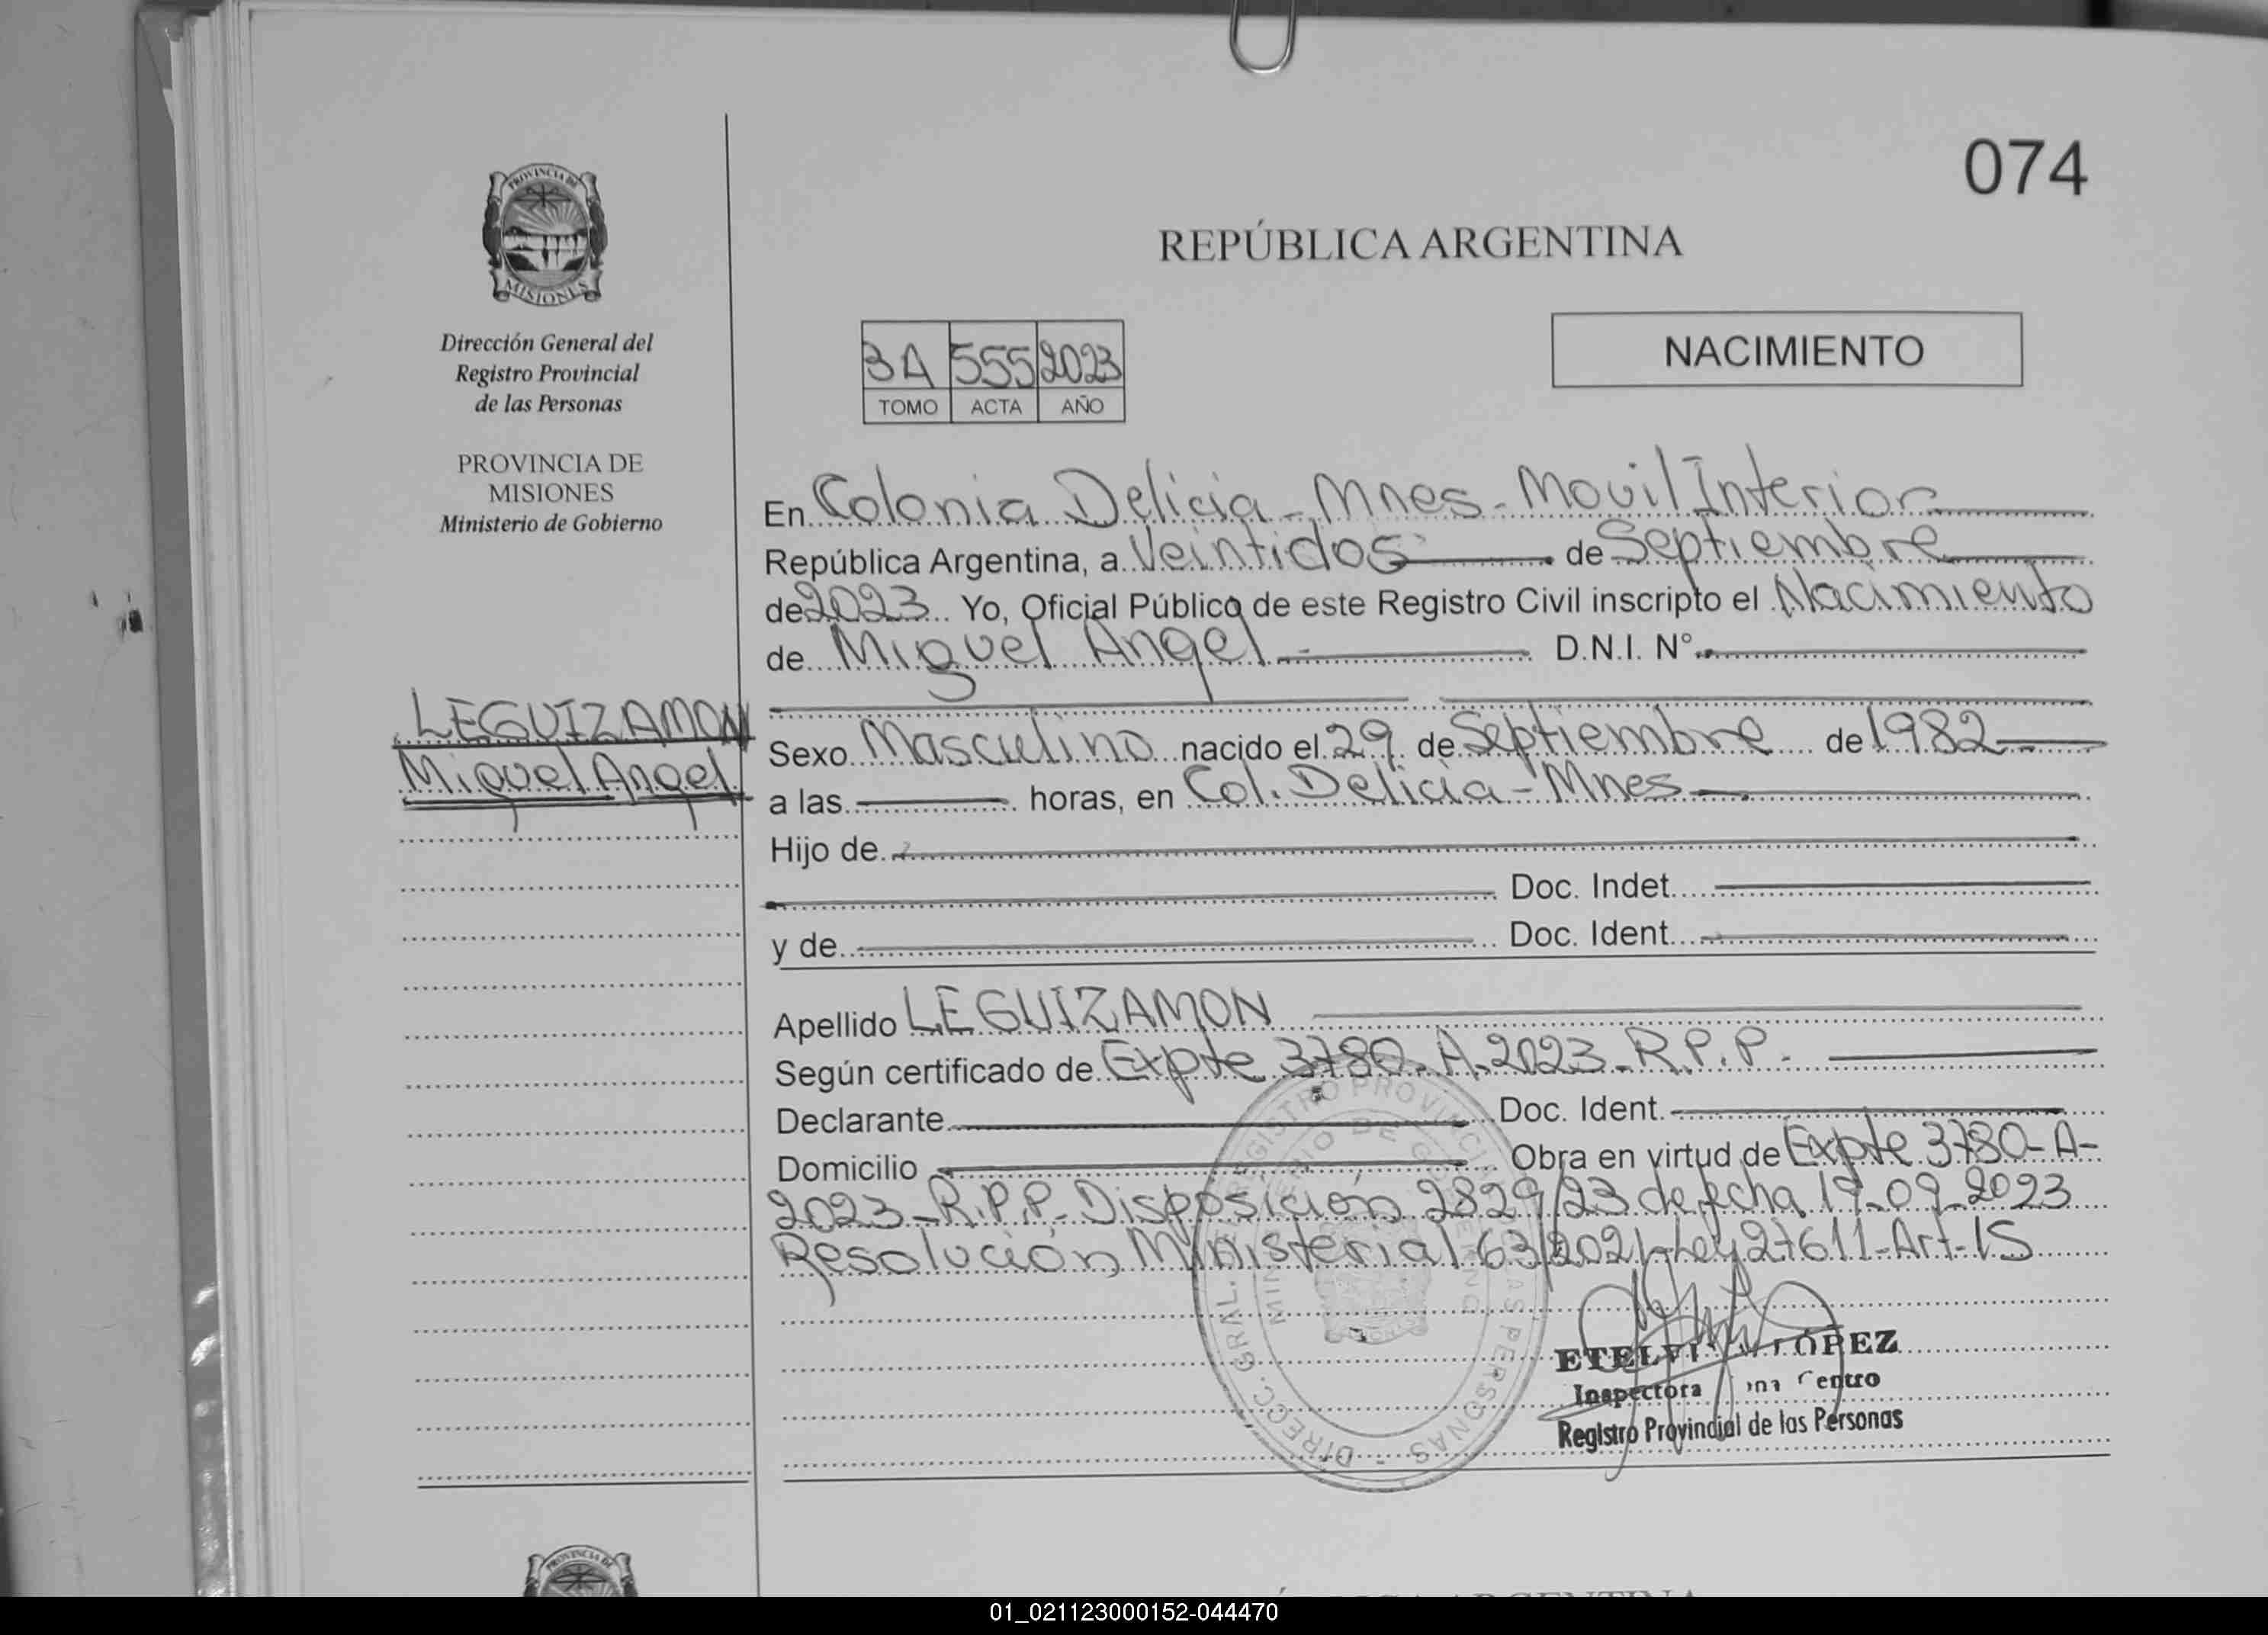 074
PROVINCIA DE
MISIONES
REPÚBLICA ARGENTINA
Dirección General del
Registro Provincial
de las Personas
PROVINCIA DE
MISIONES
Ministerio de Gobierno
3A 555 2023
TOMO ACTA AÑO
NACIMIENTO
En Colonia Delicia - Mnes - Movil Interior
República Argentina, a Veintidos de Septiembre
de 2023 Yo, Oficial Público de este Registro Civil inscripto el Nacimiento
de Miguel Angel D.N.I. N°
LEGUIZAMON
Miguel Angel
Sexo Masculino nacido el 29 de Septiembre de 1982
a las horas, en Col. Delicia - Mnes
Hijo de
Doc. Indet.
y de Doc. Ident.
Apellido LEGUIZAMON
Según certificado de Expte 3780-A-2023-R.P.P.
Declarante Doc. Ident.
Domicilio Obra en virtud de Expte 3780-A-
2023-R.P.P-Disposición 2829/23 de fecha 19-09-2023
Resolución Ministerial 63/2021-Ley 27611-Art-15
DIRECC. GRAL. REGISTRO PROVINCIAL PERSONAS
LÓPEZ
Inspectora Centro
Registro Provincial de las Personas
PROVINCIA DE
01_021123000152-044470